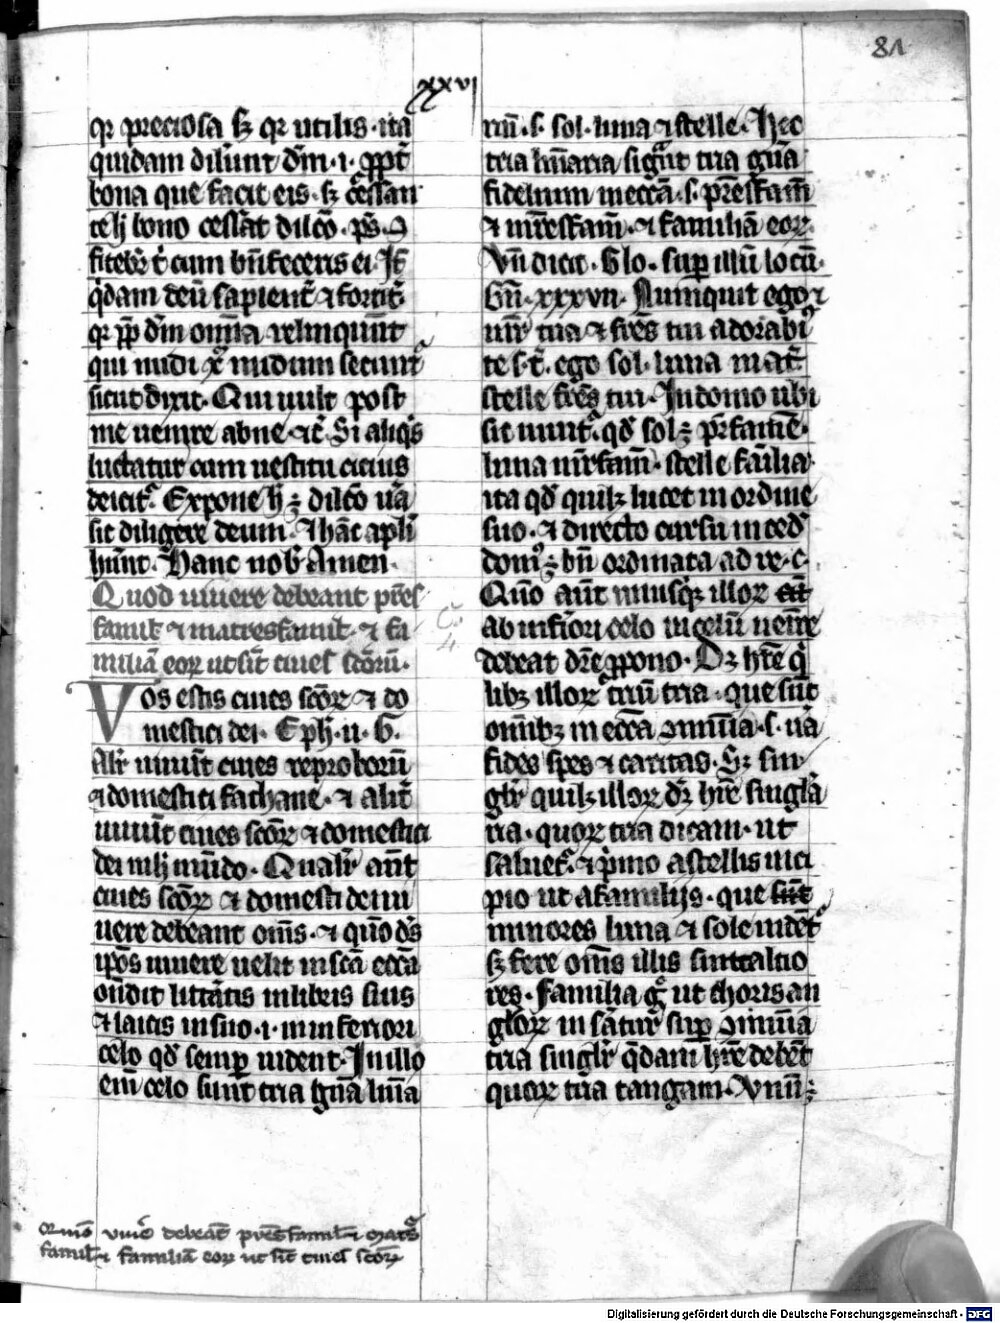 81
xxvi
qr preciosa sꝫ qr utilis · ita
quidam diliunt dm̄ · i · ꝓpt̄
bona que facit eis · sꝫ cessan
te bono cessat dilcō · ps̄ ·
fitebr̄ t̄ cum bn̄feceris ei · It̄
qdam deū sapient̄ ⁊ fortit̄
qr ꝓp dm̄ omīa relinquūt
qui nudi xp̄m nudum secunt̄
sicut dixit · Qui uult post
me uenire abne · ⁊c̄ Si aliqͥs
luctatur cum uestitu cicius
deicit᷑ · Expone hͦ ꝫ dilcō u̾a
sic diligere deum · ⁊ hāc apłi
hūnt · Hanc nob̄ Amen ·
Quod uiuere debeant pr̄es
famił ⁊ matresfamił · ⁊ fa
miliā eoꝝ ut sūt ciues sc̄orū ·
Vos estis ciues sc̄oꝝ ⁊ do
mestici dei · Eph̄ · ii · G ·
Alit̄ uiuūt ciues reproborū
⁊ domestici sathane · ⁊ alit̄
uiuūt ciues sc̄oꝝ ⁊ domestici
dei in hͦ mūdo · Qualr̄ aūt
ciues sc̄oꝝ ⁊ domestici dei ui
uere debeant om̄s · ⁊ quō ds̄
ip̄os uiuere uelit in sc̄a ecc̄a
oñdit litt̄atis in libris suis
⁊ laicis in suo · i · in inferiori
celo qd̄ semꝑ uident · In illo
eni celo sunt tria gn̄a lumi̅a
riū · s · sol · luna ⁊ stelle · Hec
tria lumiaria sigͣnt tria gn̄a
fidelium in ecc̄a · s · pr̄esfam̄
⁊ mr̄esfam̄ · ⁊ familiā eoꝝ ·
Vn̄ dicit · Glo · suꝑ illū locū ·
Gn̄ · xxxvii · Numquit ego ⁊
mr̄ tua ⁊ fr̄es tui adorabi᷑
te s · t̄ · ego sol · luna mat̄
stelle fr̄es tui · In domo ubi
sic uiuūt᷑ · qd̄ sol ꝫ pr̄famil̄ ·
luna mr̄fam̄ · stelle familia ·
ita qd̄ quilꝫ lucet in ordine
suo · ⁊ directo cursu inced᷑
domͦ ꝫ bn̄ ordinata ad re · c ·
Quō aūt unusqͥsqꝫ illoꝝ
ab inf̄iori celo in celū uenire
debeat dr̄e ꝓpono · Dꝫ hr̄e qͥ
libꝫ illoꝝ triū tria · que sūt
om̄ibꝫ in ecc̄a ꝯmunia · s · u̾a
fides spes ⁊ caritas · Sꝫ sin
gl̄r quilꝫ illoꝝ dꝫ hr̄e singl̄a
tria · quoꝝ tria dicam · ut
saluet᷑ · ⁊ pͥmo a stellis inci
pio ut a familijs · que
minores luna ⁊ sole uidēt᷑
sꝫ fere om̄s illis sunt altio
res · Familia gͦ ut choris an
gl̄oꝝ in sātur suꝑ ꝯmunia
tria singl̄r qͥdam hr̄e debēt
quoꝝ tria tangam · Vnū ꝫ
Quō viuē debeāt pr̄esfamil̄ ⁊ matꝭ
famil̄ ⁊ familiā eoꝝ ut sīt ciues sc̄oꝝ
Digitalisierung gefördert durch die Deutsche Forschungsgemeinschaft · DFG